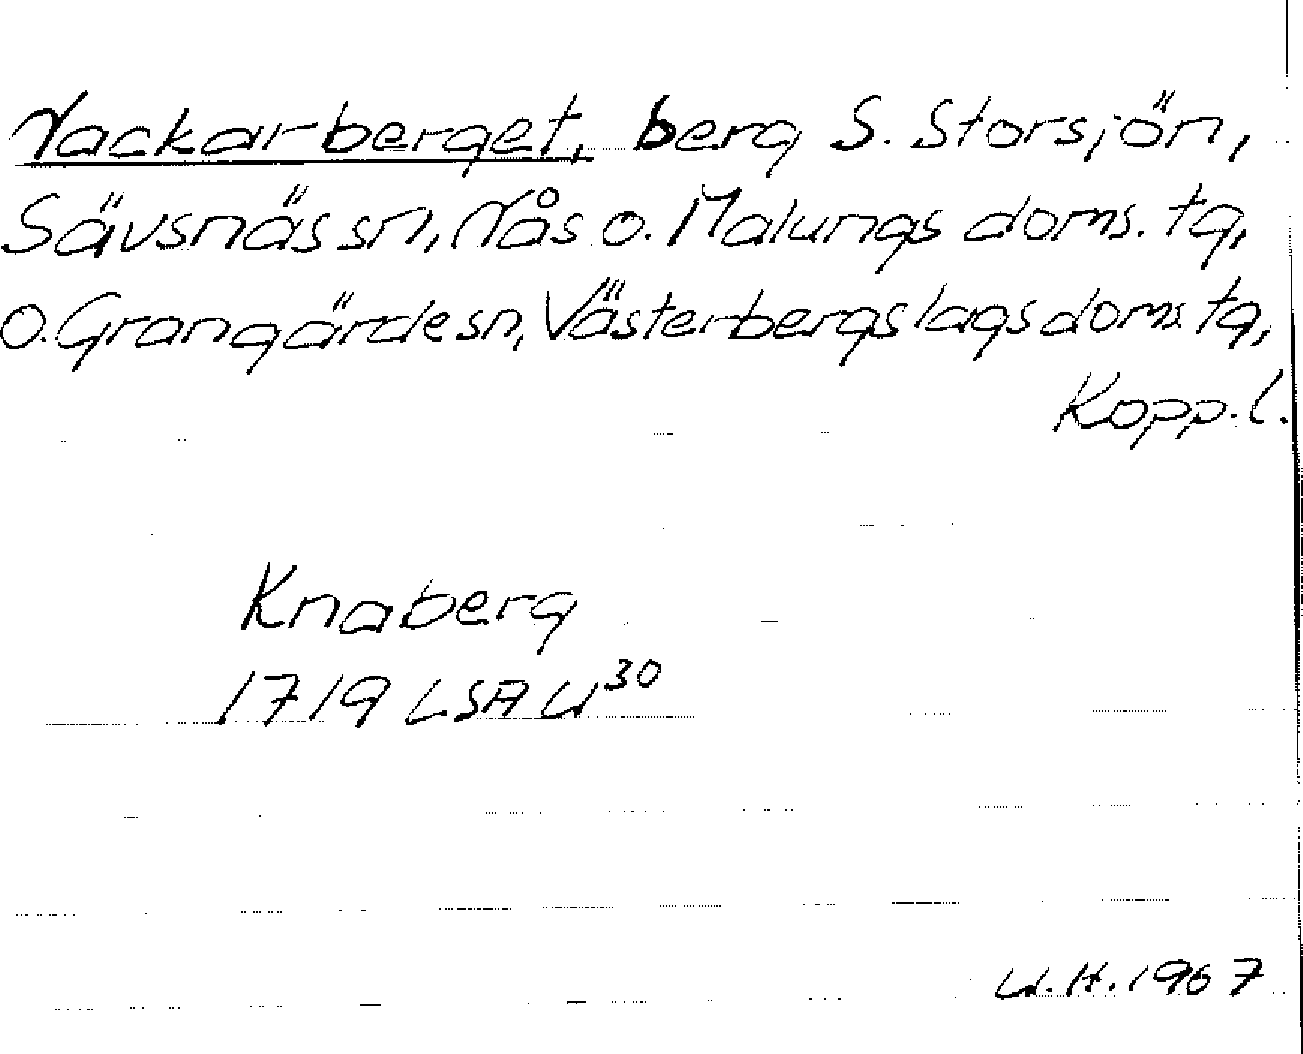 Nackarberget, berg S. Storsjön,
Sävsnäs sn, Nås o. Malungs doms. tg,
o. Grangärde sn, Västerbergslags doms. tg,
Kopp. l.
Knaberg
1719 LSA U³⁰
U.H. 1967